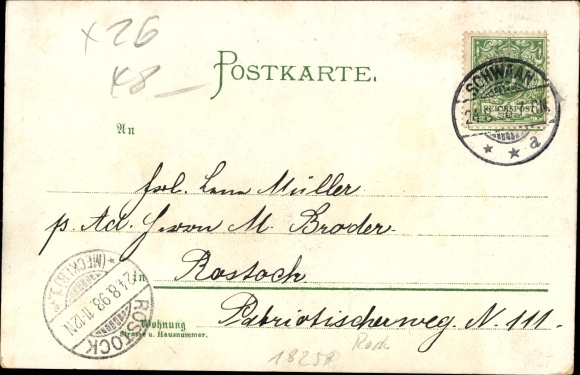 x26
x8 —
POSTKARTE.
SCHWAAN
24.8.
REICHSPOST
* * a
An
Frl. Lena Müller
p. Ad. Herrn M. Broder.
in Rostock
Patriotischerweg. N. 111.
Wohnung
Straße u. Hausnummer.
ROSTOCK
(MECKLB)
24.8.98. 11-12N.
18258